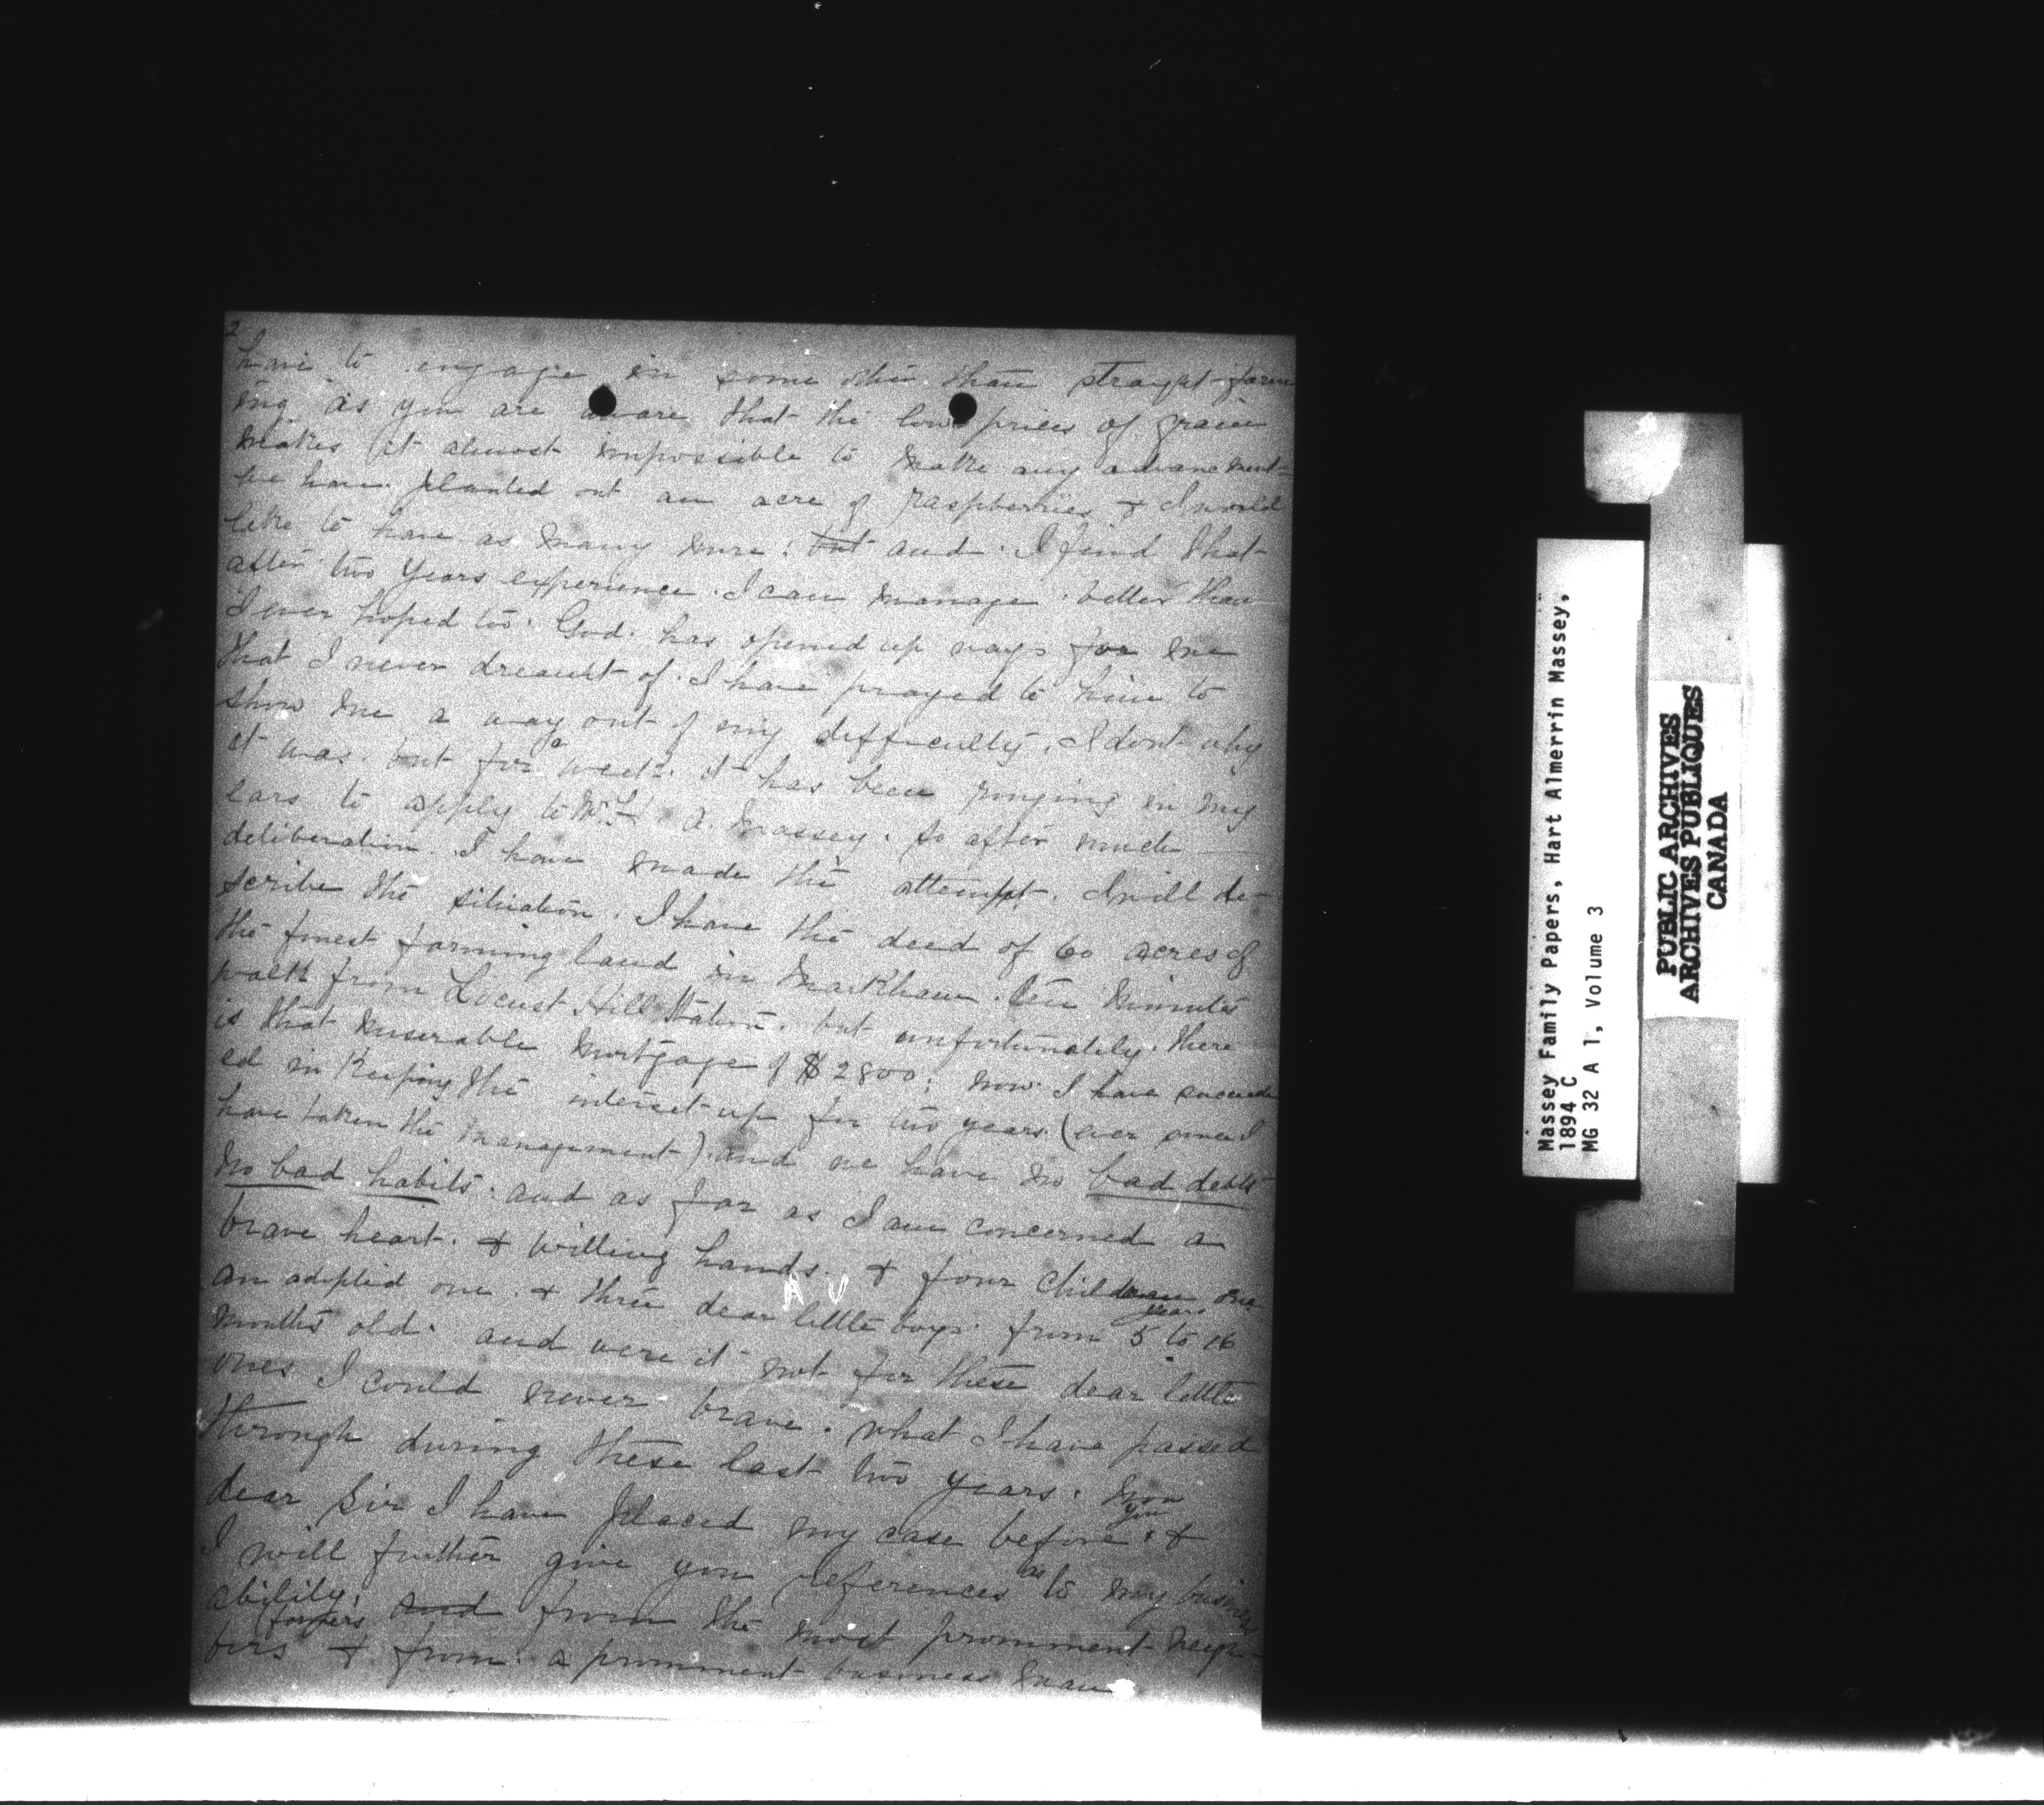 2
have to engage in some other than straight farm
ing as you are aware that the low prices of grain
makes it almost impossible to make any advancment
we have planted out an acre of raspberries & I would
like to have as many more: but and I find that
after two years experience. I can manage better than
I ever hoped to. God has opened up ways for me
that I never dreamt of. I have prayed to him to
show me a way out of my difficulty. I dont why
it was. but for a week. it has been ringing in my
ears to apply to Mr H. A. Massey. So after much
deliberation. I have made the attempt. I will de-
scribe the situation. I have the deed of 60 acres of
the finest farming land in Markham. ten minutes
walk from Locust Hill Station. but unfortunately. there
is that miserable mortgage of $2800; now I have succeed
ed in keeping the interest up for two years. (ever since I
have taken the management) and we have no bad debts
no bad habits. and as far as I am concerned a
brave heart. & willing hands. & four children one
an adopted one. & three dear little boys. from 5 years to 16
months old. and were it not for these dear little
ones I could never brave. what I have passed
through during these last two years. Now
dear Sir I have placed my case before you &
I will further give you references as to my business
ability. and from the most prominent neigh-
bors & from a prominent business man
Massey Family Papers, Hart Almerrin Massey,
1894 C
MG 32 A 1, Volume 3
PUBLIC ARCHIVES
ARCHIVES PUBLIQUES
CANADA